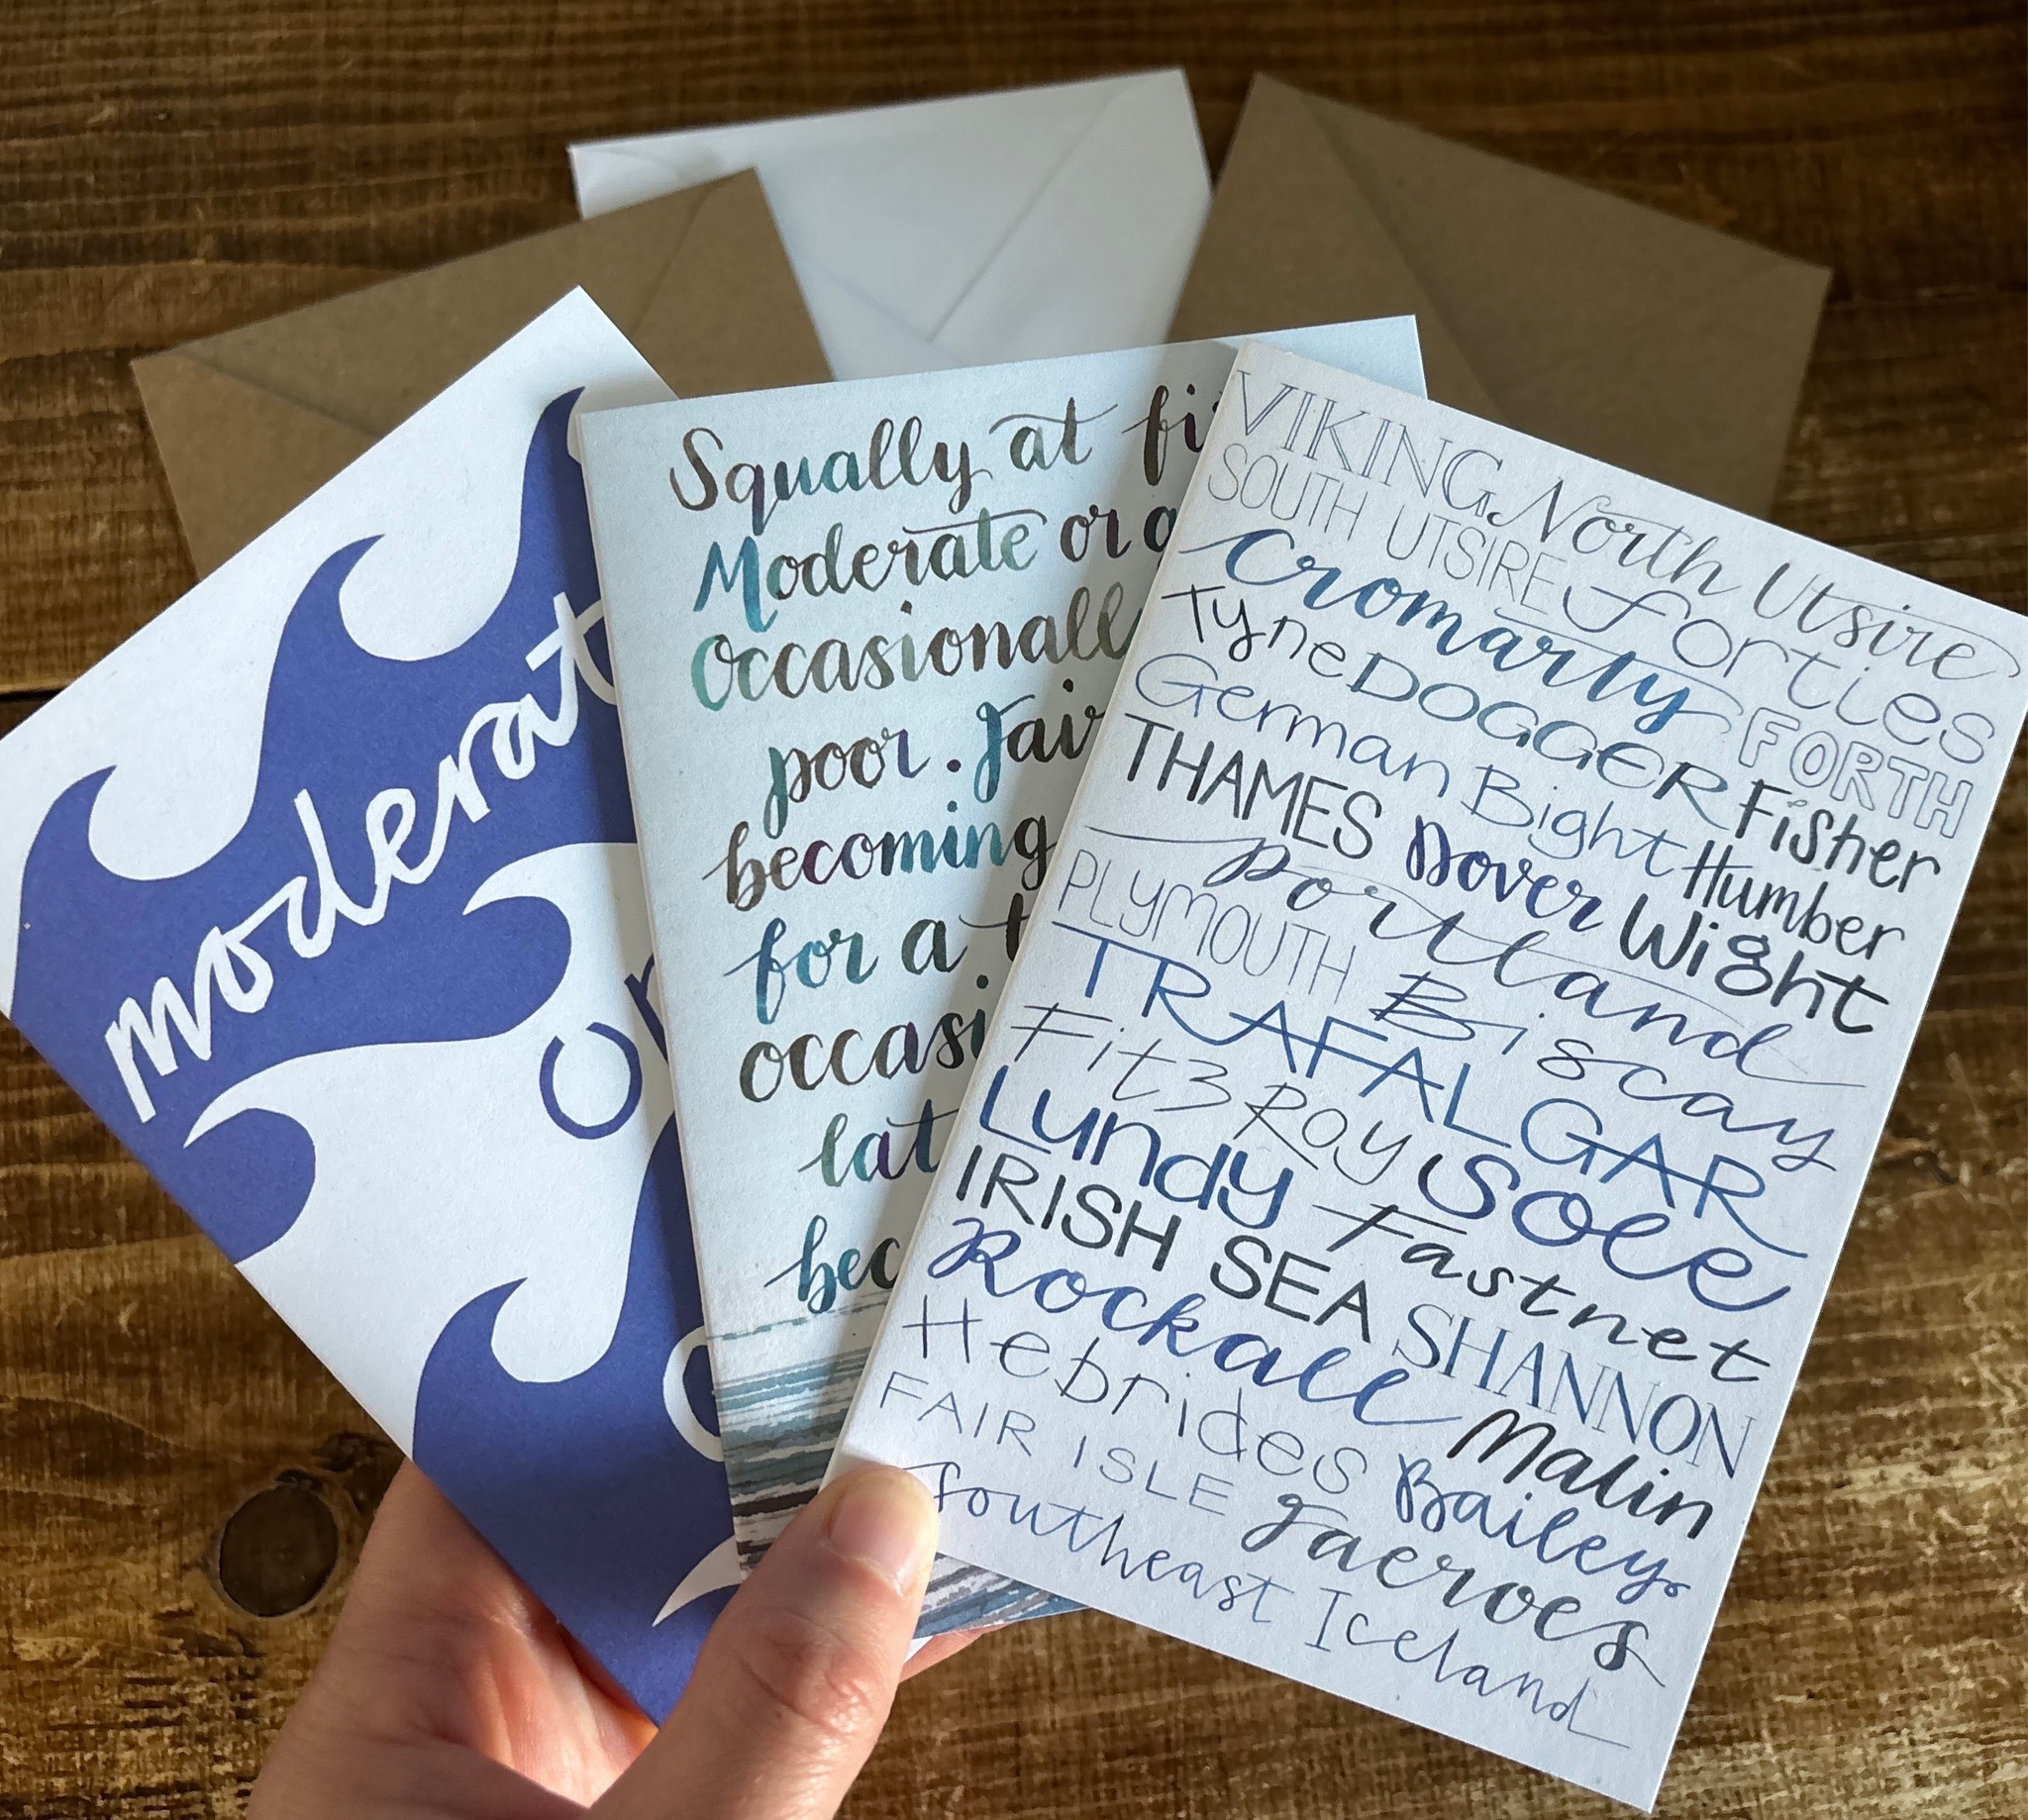 moderat
or
Squally at
Moderate or
Occasionall
poor. Fair
becoming
for a
occasi
lat
bec
VIKING North Utsire
SOUTH UTSIRE Forties
Cromarty FORTH
Tyne DOGGER Fisher
German Bight Humber
THAMES Dover Wight
Portland
PLYMOUTH Biscay
TRAFALGAR
FitzRoy Sole
Lundy Fastnet
IRISH SEA SHANNON
Rockall Malin
Hebrides Bailey
FAIR ISLE Faeroes
Southeast Iceland